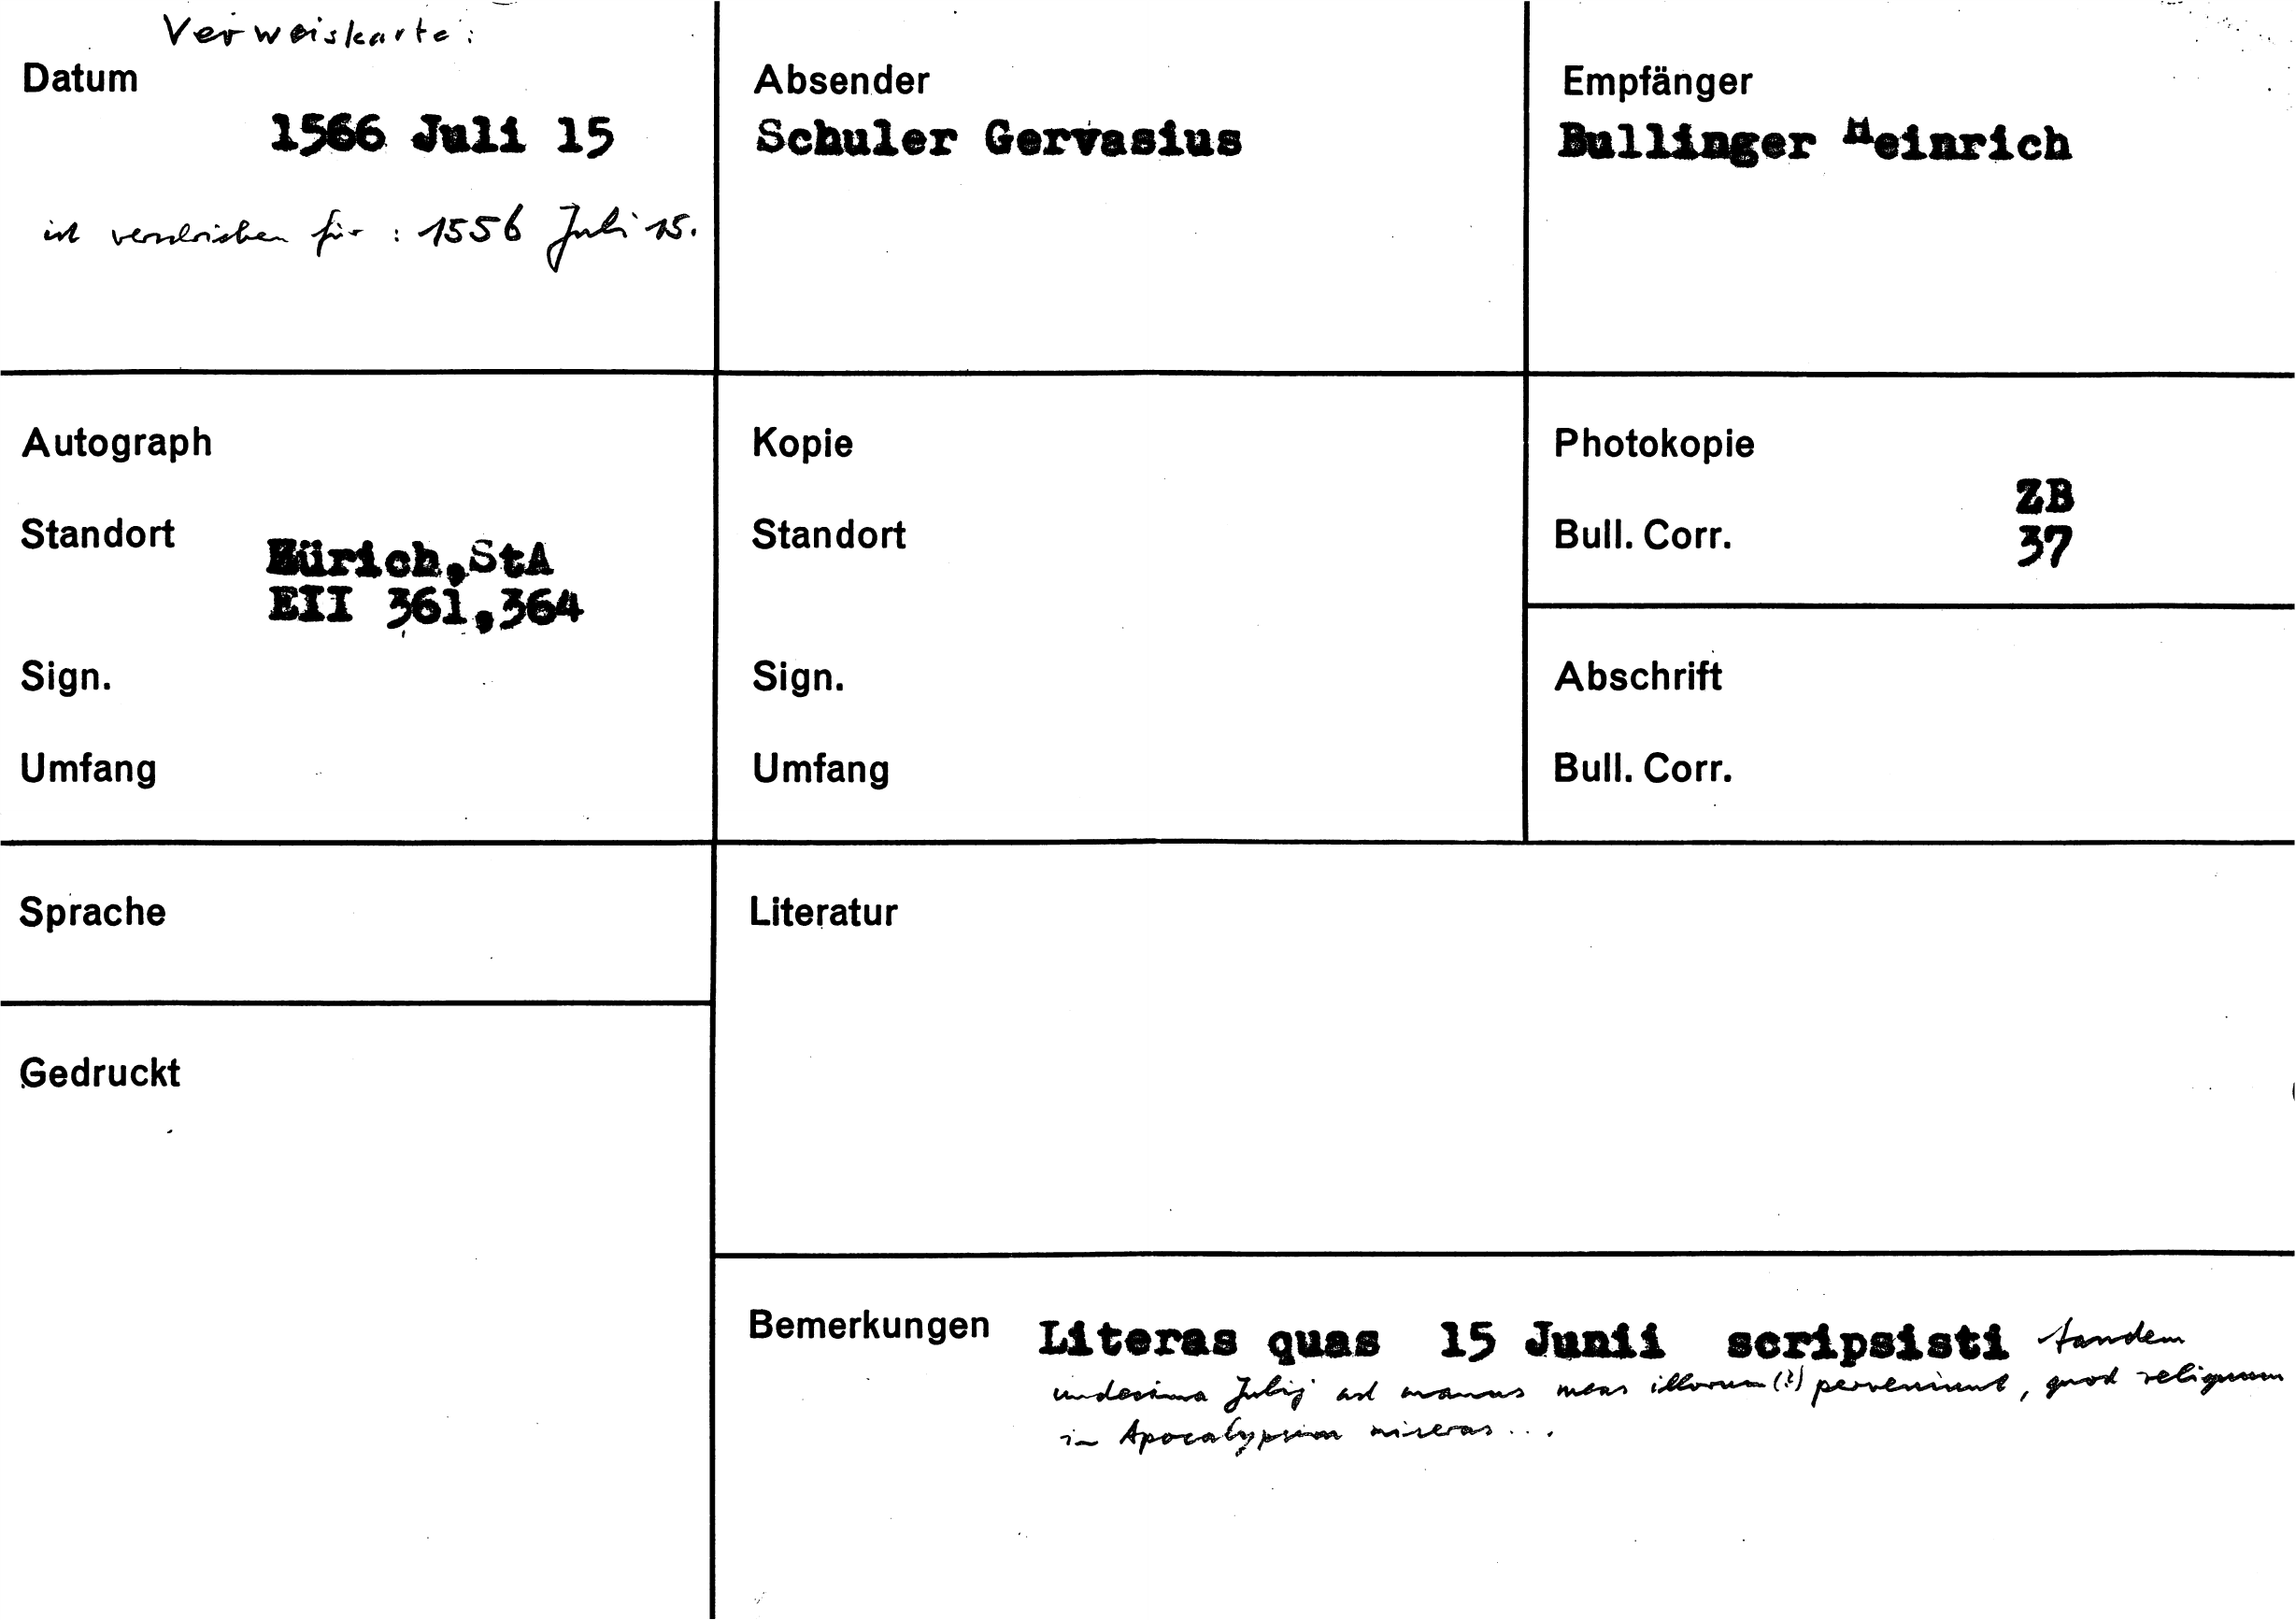 Verweiskarte:
Datum
1566 Juli 15
ist verschrieben für : 1556 Juli 15.
Absender
Schuler Gervasius
Empfänger
Bullinger Heinrich
Autograph
Standort
Zürich,StA
EII 361,364
Sign.
Umfang
Kopie
Standort
Sign.
Umfang
Photokopie
ZB
Bull. Corr.
37
Abschrift
Bull. Corr.
Sprache
Literatur
Gedruckt
Bemerkungen
Literas quas 15 Junii scripsisti tandem
undecima Julij ad manus meas illorum (?) pervenirent, quod reliquum
in Apocalypsim miseras...